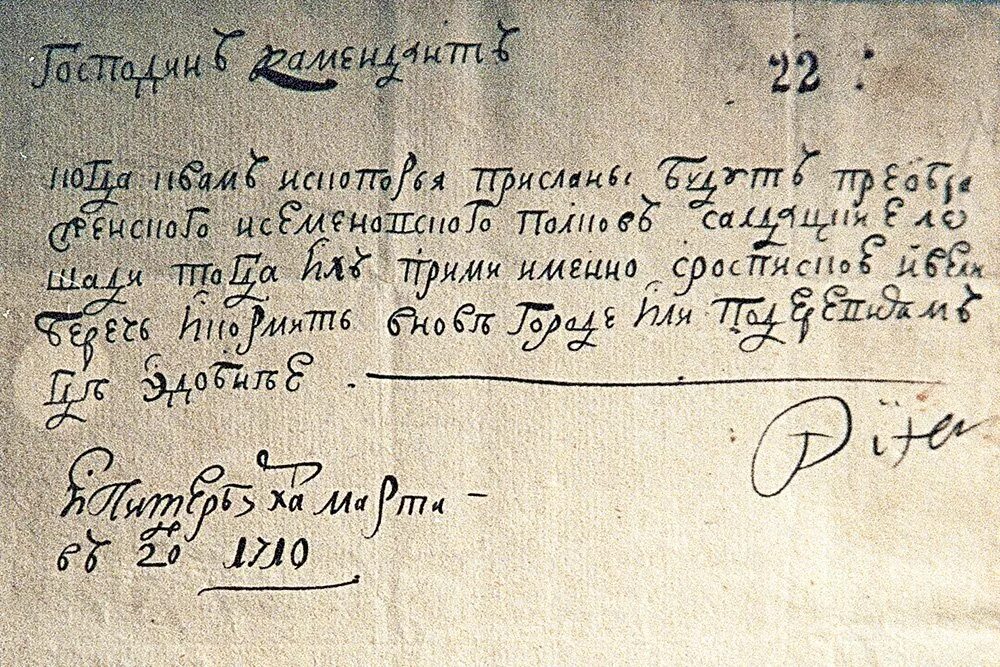 Господинъ камендантъ
22
когда квамъ ископорья присланы будутъ преобра
женского исеменовского полковъ салдацкие ло
шади тогда ихъ прими именно сроспискою ивели
беречь икормить вновѣ городе или подеревнямъ
гдѣ удобнѣе .
Piter
марта
въ 20 1710